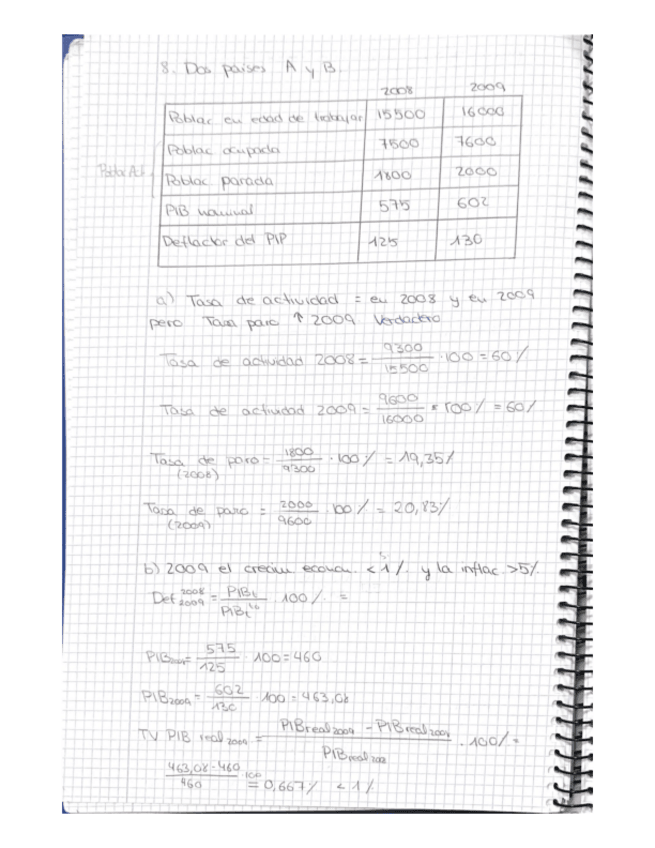 8. Dos países A y B.
2008 2009
Poblac en edad de trabajar 15500 16000
Poblac ocupada 7500 7600
Poblac parada 1800 2000
PIB nominal 575 602
Deflactor del PIP 125 130
a) Tasa de actividad = en 2008 y en 2009
pero Tasa paro ↑ 2009. Verdadero
Tasa de actividad 2008 = 9300/15500 · 100 = 60%
Tasa de actividad 2009 = 9600/16000 · 100% = 60%
Tasa de paro = 1800/9300 · 100% = 19,35%
(2008)
Tasa de paro = 2000/9600 · 100% = 20,83%
(2009)
b) 2009 el crecim econom. < 1% y la inflac. >5%
Def 2008 2009 = PIBt/PIBt · 100% =
PIB = 575/125 · 100 = 460
PIB2009 = 602/130 · 100 = 463,08
TV PIB real 2009 = PIBreal2009 - PIBreal / PIBreal · 100% =
463,08-460/460 · 100 = 0,667% < 1%